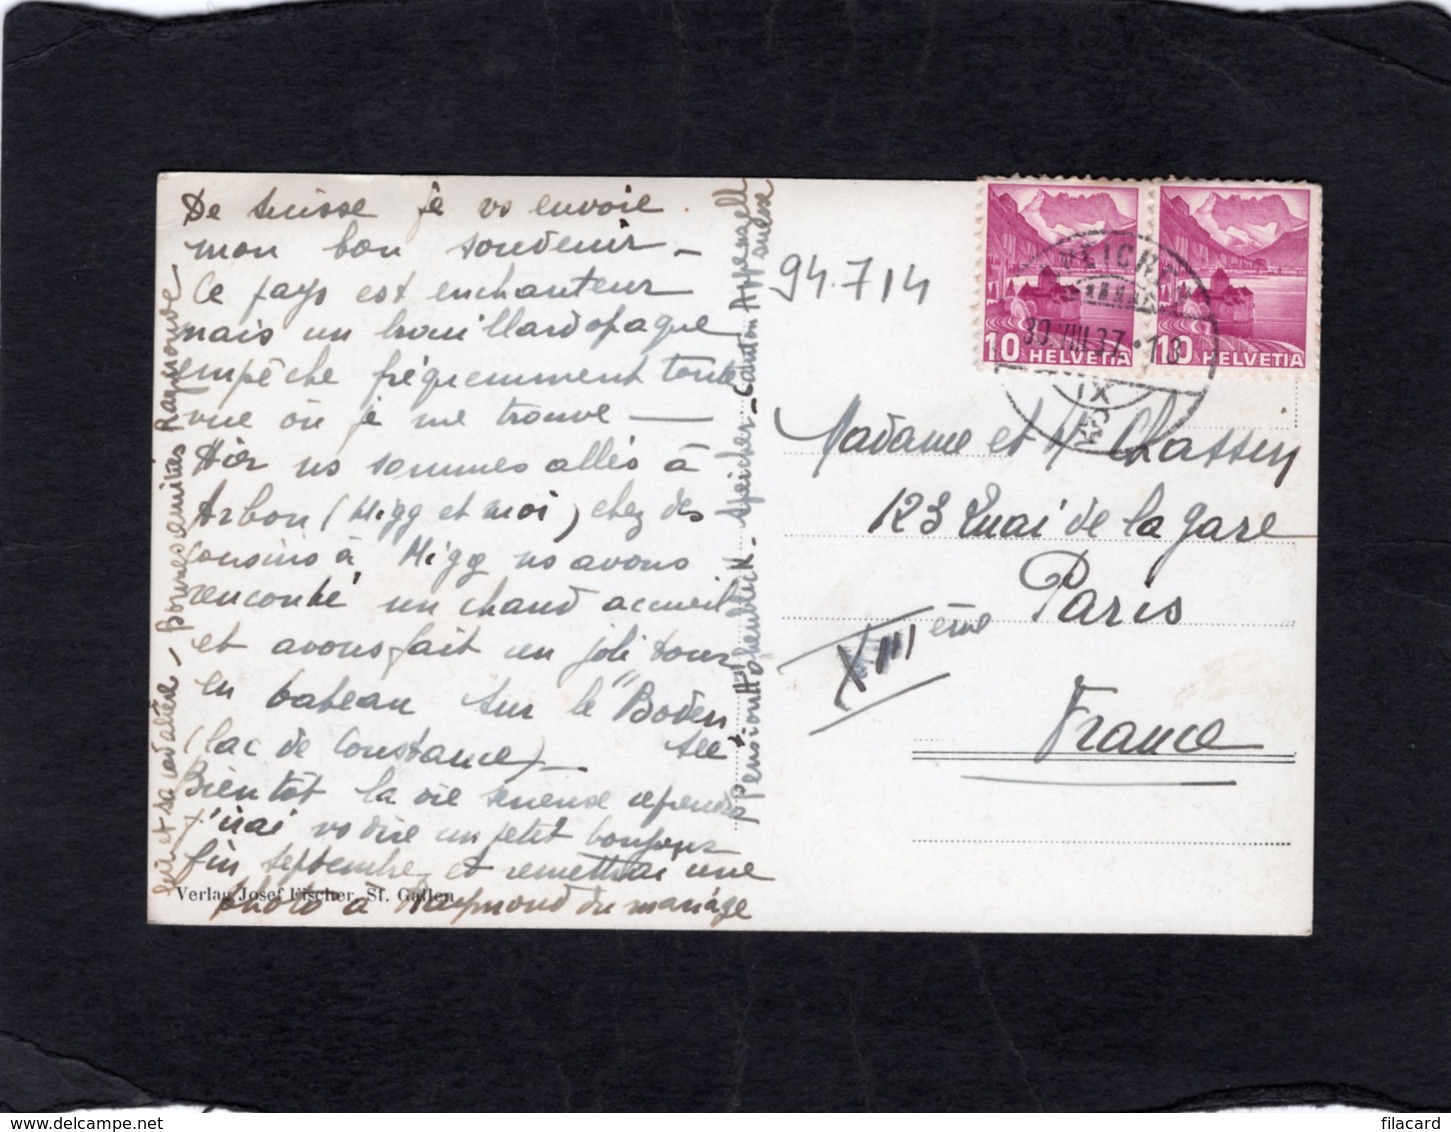 De Suisse je vs envoie
mon bon souvenir –
Ce pays est enchanteur
mais un brouillard opaque
empêche fréquemment toute
vue où je me trouve –
Hier ns sommes allés à
Arbon (Migg et moi) chez des
cousins à Migg ns avons
rencontré un chaud accueil
et avons fait un joli tour
en bateau sur le "Boden
(lac de Constance) – See"
Bientôt la vie sérieuse reprendra
j'irai vs dire un petit bonjour
fin septembre et remettrai une
photo à Raymond du mariage
Bonnes amitiés Raymonde
Verlag Josef Fischer, St. Gallen
Pension Hohenblick – Speicher – Canton Appenzell
suisse
94.714
10 HELVETIA
10 HELVETIA
30.VIII.37. 18
Madame et Mr Chassin
123 Quai de la Gare
Paris
XIII ème
France
filacard